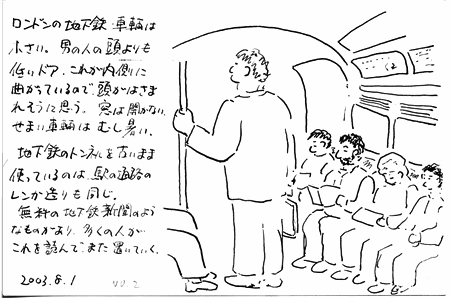 ロンドンの地下鉄車輌は
小さい。男の人の頭よりも
低いドア、これが内側に
曲がっているので、頭がはさま
れそうに思う。窓は開かない。
せまい車輌はむし暑い。
地下鉄のトンネルを古いまま
使っているのは、駅の通路の
レンガ造りも同じ。
無料の地下鉄新聞のよう
なものがあり、多くの人が
これを読んでまた置いていく。
2003.8.1